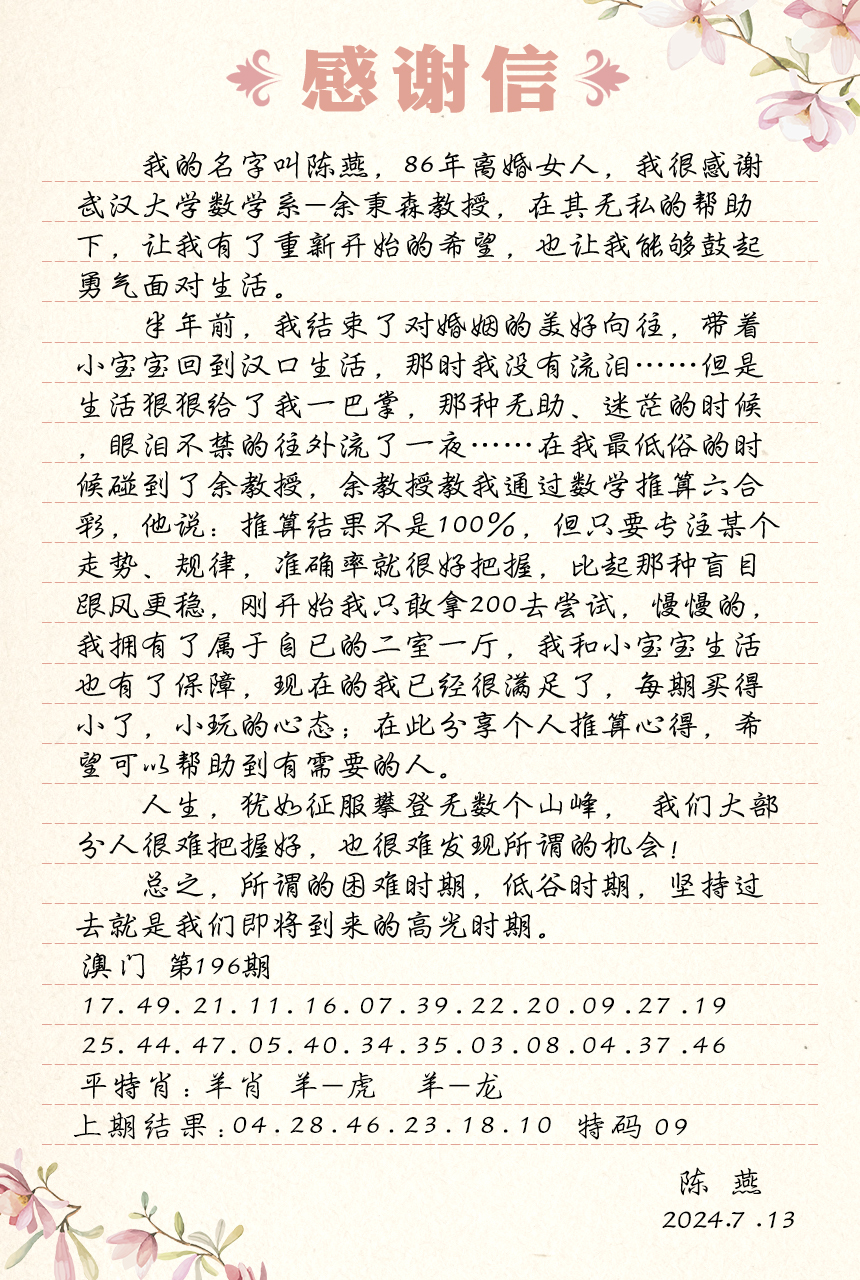 感谢信
我的名字叫陈燕，86年离婚女人，我很感谢
武汉大学数学系—余秉森教授，在其无私的帮助
下，让我有了重新开始的希望，也让我能够鼓起
勇气面对生活。
半年前，我结束了对婚姻的美好向往，带着
小宝宝回到汉口生活，那时我没有流泪……但是
生活狠狠给了我一巴掌，那种无助、迷茫的时候
，眼泪不禁的往外流了一夜……在我最低俗的时
候碰到了余教授，余教授教我通过数学推算六合
彩，他说：推算结果不是100%，但只要专注某个
走势、规律，准确率就很好把握，比起那种盲目
跟风更稳，刚开始我只敢拿200去尝试，慢慢的，
我拥有了属于自已的二室一厅，我和小宝宝生活
也有了保障，现在的我已经很满足了，每期买得
小了，小玩的心态；在此分享个人推算心得，希
望可以帮助到有需要的人。
人生，犹如征服攀登无数个山峰， 我们大部
分人很难把握好，也很难发现所谓的机会！
总之，所谓的困难时期，低谷时期，坚持过
去就是我们即将到来的高光时期。
澳门 第196期
17.49.21.11.16.07.39.22.20.09.27.19
25.44.47.05.40.34.35.03.08.04.37.46
平特肖：羊肖 羊—虎 羊—龙
上期结果：04.28.46.23.18.10 特码 09
陈 燕
2024.7.13